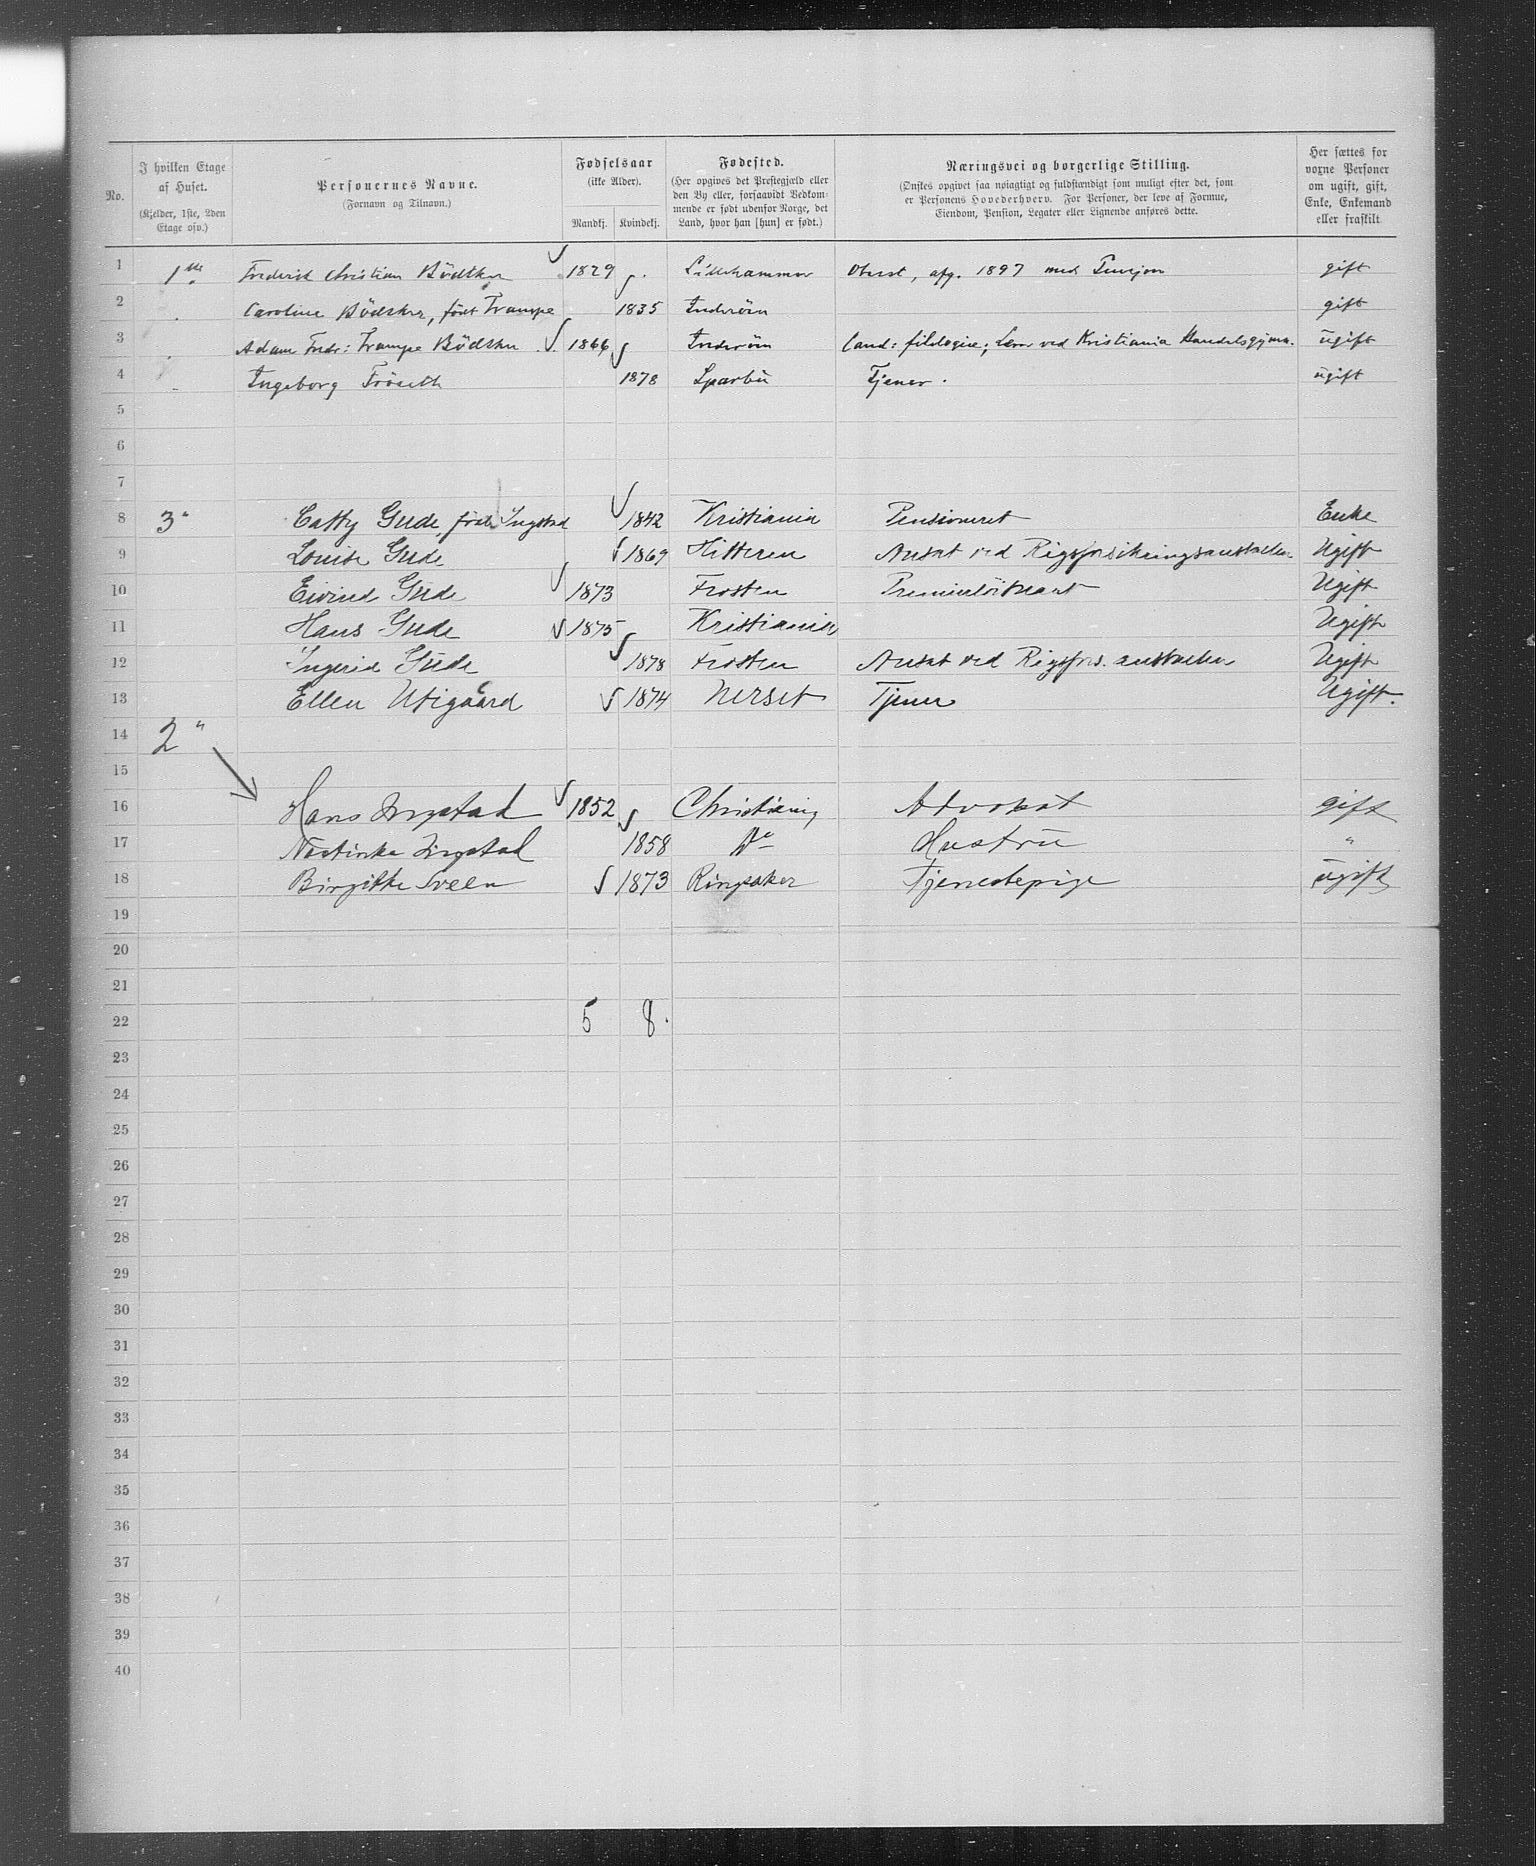 No.
I hvilken Etage af Huset.
(Kjelder, 1ste, 2den Etage osv.)
Personernes Navne.
(Fornavn og Tilnavn.)
Fødselsaar
(ikke Alder).
Mandkj. Kvindekj.
Fødested.
(Her opgives det Prestegjæld eller den By eller, forsaavidt Vedkommende er født udenfor Norge, det Land, hvor han [hun] er født.)
Næringsvei og borgerlige Stilling.
(Ønskes opgivet saa nøiagtigt og fuldstændigt som muligt efter det, som er Personens Hovederhverv. For Personer, der leve af Formue, Eiendom, Pension, Legater eller Lignende anføres dette.
Her sættes for voxne Personer om ugift, gift, Enke, Enkemand eller fraskilt
1 1ste Frederik Christian Bödtker 1829 Lillehammer Oberst, afg. 1897 med Pension gift
2 Caroline Bödtker, født Trampe 1835 Inderöen gift
3 Adam Fredr: Trampe Bödtker 1866 Inderöen Cand: filologiæ; Lærer ved Kristiania Handelsgymn. ugift
4 Ingeborg Fröseth 1878 Sparbu Tjener. ugift
5
6
7
8 3" Catty Gude, født Ingstad 1842 Kristiania Pensioneret Enke
9 Louise Gude 1869 Hitteren Ansat ved Rigsforsikringsanstalten Ugift
10 Eivind Gude 1873 Frosten Premierlöitnant Ugift
11 Hans Gude 1875 Kristiania Ugift
12 Ingerid Gude 1878 Frosten Ansat ved Rigsfors. anstalten Ugift
13 Ellen Utigaard 1874 Nerset Tjener Ugift.
14 2"
15
16 Hans Ingstad 1852 Christiania Advokat gift
17 Nastinka Ingstad 1858 Do Hustru "
18 Birgitte Sveen 1873 Ringsaker Tjenestepige ugift
19
20
21
22 5 8.
23
24
25
26
27
28
29
30
31
32
33
34
35
36
37
38
39
40